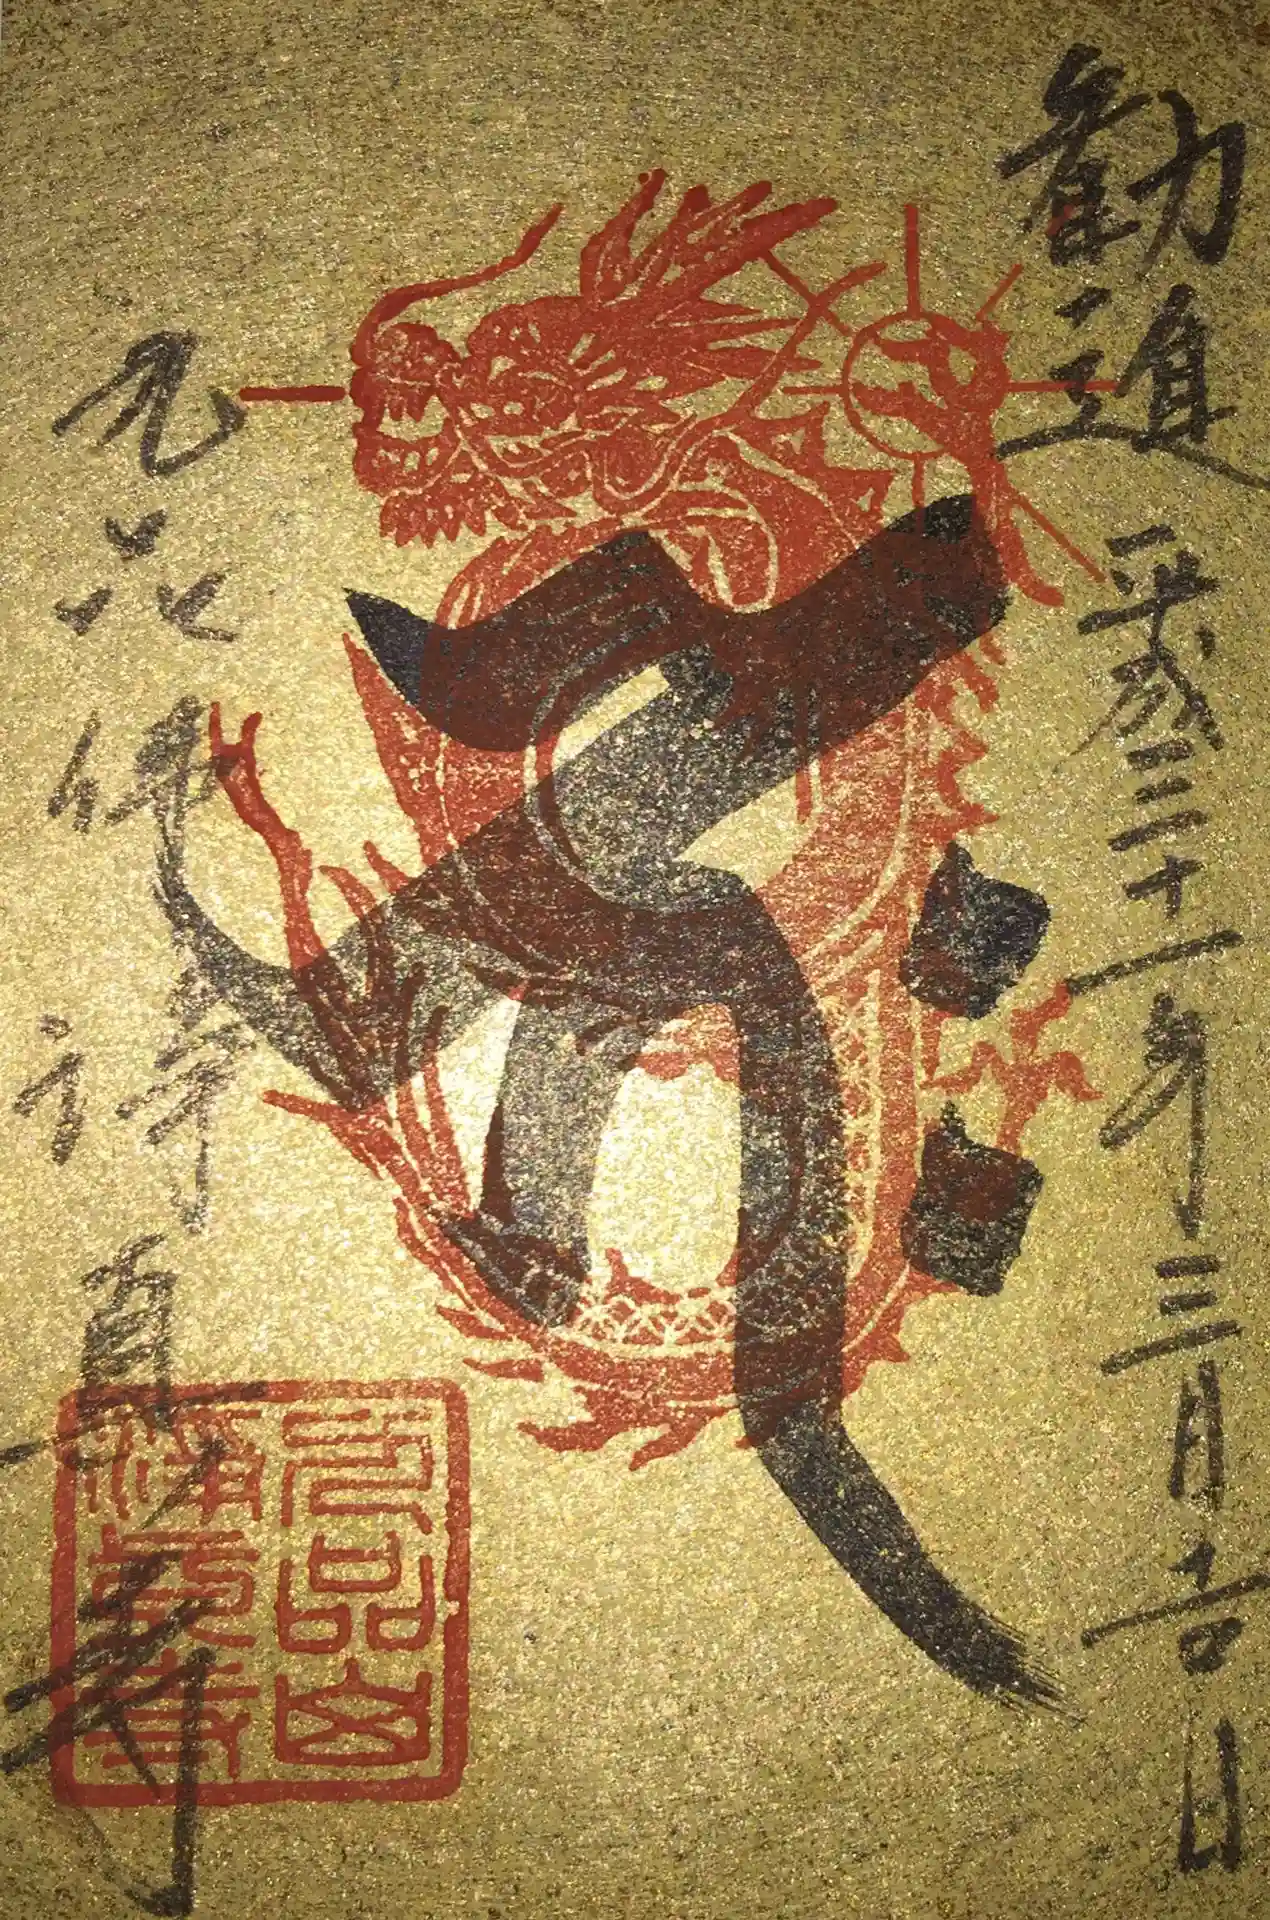 勧進 平成三十一年三月吉日
ह्रीः
九品佛 浄真寺
九品山
淨眞寺